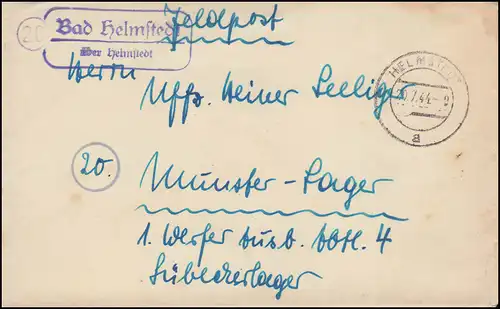 20
Bad Helmstedt
über Helmstedt
Feldpost
Herrn
Uffz. Heiner Seeliger
HELMSTEDT
20.7.44
a
20.
Munster-Lager
1. Werfer Ausb. Abtl. 4
Lübeckerlager